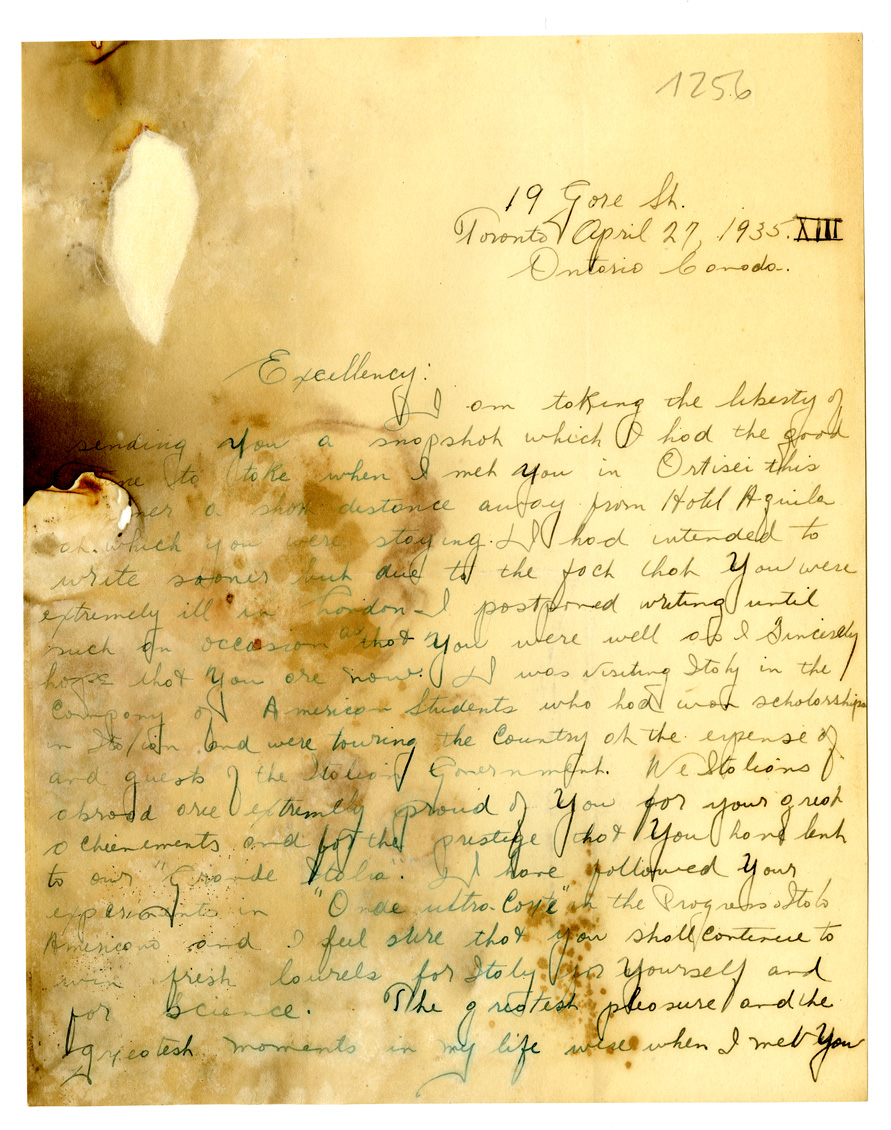 1256
19 Gore St.
Toronto April 27, 1935. XIII
Ontario Canada.
Excellency:
I am taking the liberty of
sending you a snapshot which I had the good
ne to take when I met you in Ortisei this
mer a short distance away from Hotel Aquila
at which you were staying. I had intended to
write sooner but due to the fact that You were
extremely ill in London - I postponed writing until
such an occasion as that You were well as I sincerely
hope that You are now. I was visiting Italy in the
Company of American Students who had won scholarships
in Italian and were touring the Country at the expense of
and guests of the Italian Government. We Italians
abroad are extremly proud of You for your great
achievements and for the prestige that You have lent
to our "Grande Italia". I have followed Your
experiments in "Onde ultra-corte" in the Progresso Italo
Americano and I feel sure that you shall continue to
win fresh laurels for Italy for Yourself and
for science. The greatest pleasure and the
greatest moments in my life were when I met You